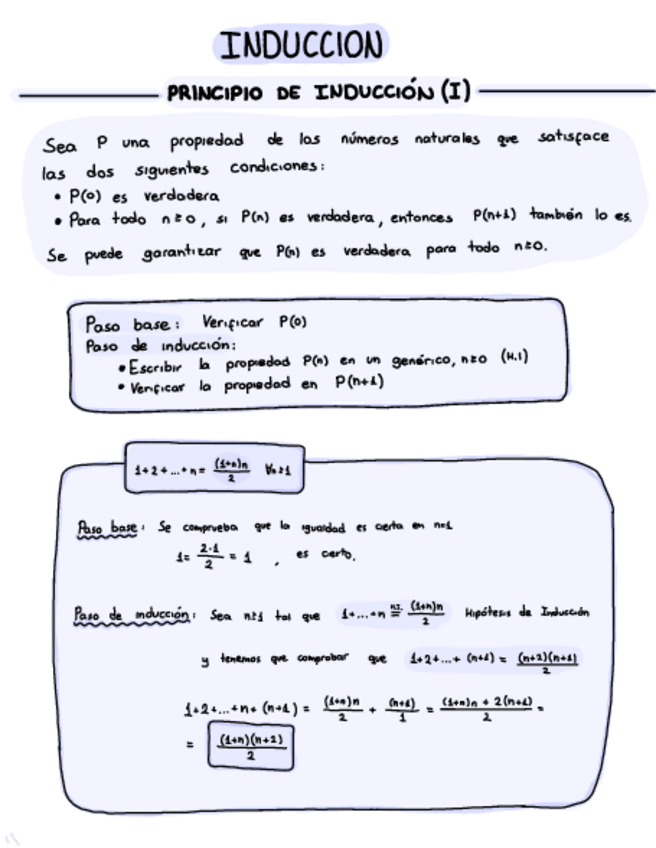 INDUCCION
PRINCIPIO DE INDUCCIÓN (I)
Sea P una propiedad de los números naturales que satisface
las dos siguientes condiciones:
• P(0) es verdadera
• Para todo n≥0, si P(n) es verdadera, entonces P(n+1) también lo es.
Se puede garantizar que P(n) es verdadera para todo n≥0.
Paso base: Verificar P(0)
Paso de inducción:
• Escribir la propiedad P(n) en un genérico, n≥0 (H.I)
• Verificar la propiedad en P(n+1)
1+2+...+n= (1+n)n/2 ∀n≥1
Paso base: Se comprueba que la igualdad es cierta en n=1
1= 2·1/2 = 1 , es certo.
Paso de inducción: Sea n≥1 tal que 1+...+n =^{H.I.} (1+n)n/2 Hipótesis de Inducción
y tenemos que comprobar que 1+2+...+(n+1) = (n+2)(n+1)/2
1+2+...+n+(n+1) = (1+n)n/2 + (n+1)/1 = (1+n)n + 2(n+1)/2 =
= (1+n)(n+2)/2